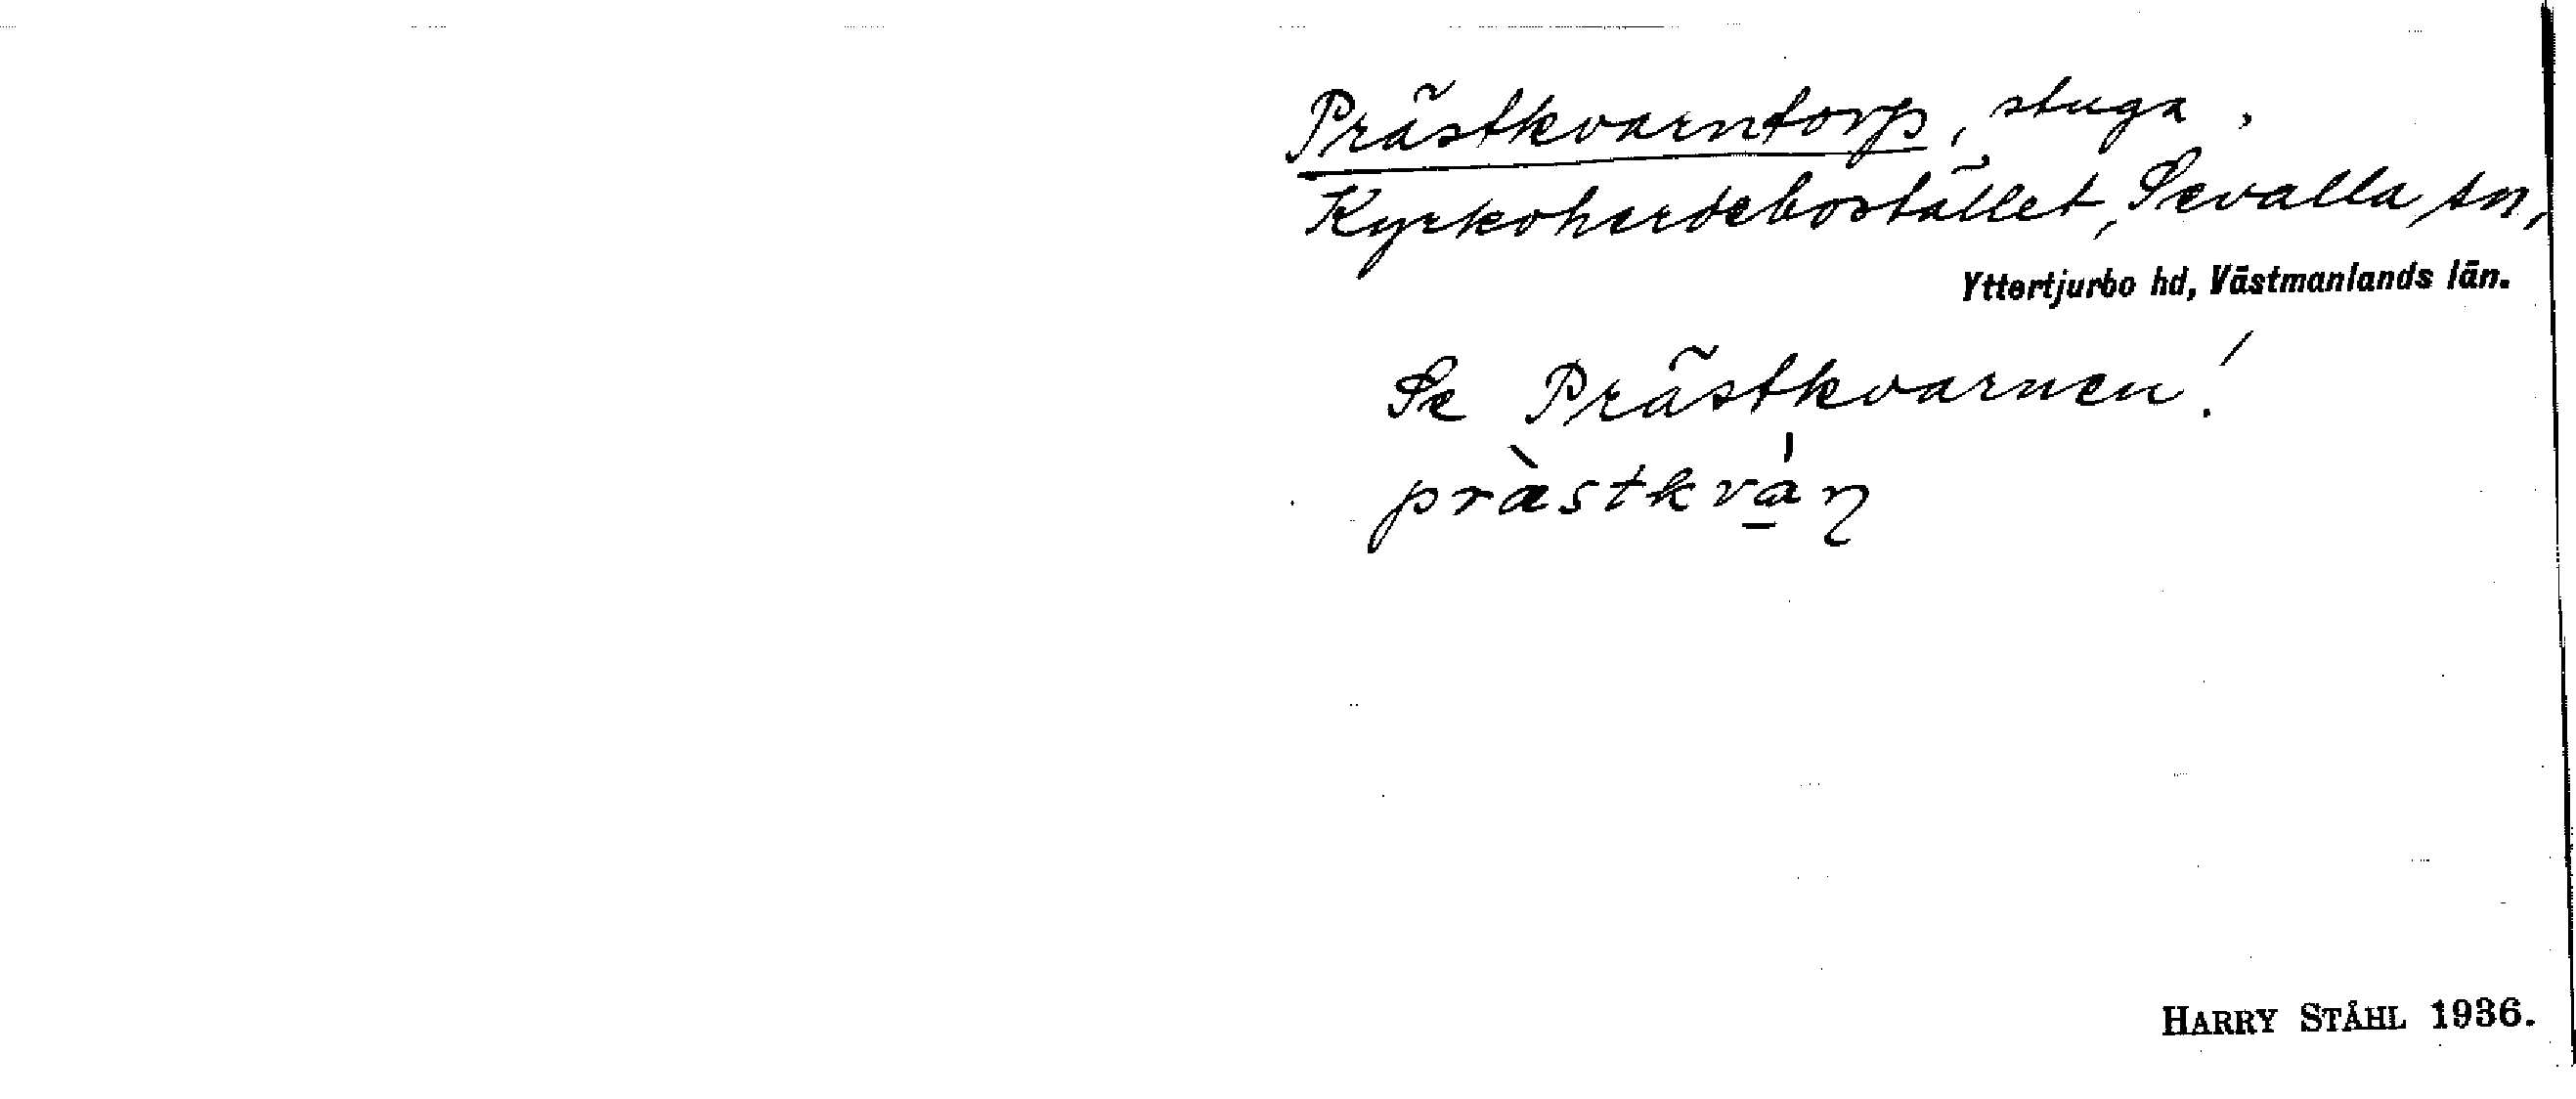 Prästkvarntorp, stuga,
Kyrkoherdebostället, Sevalla sn,
Yttertjurbo hd, Västmanlands län.
Se Prästkvarnen!
præ̀stkvá̱ɳ
HARRY STÅHL 1936.